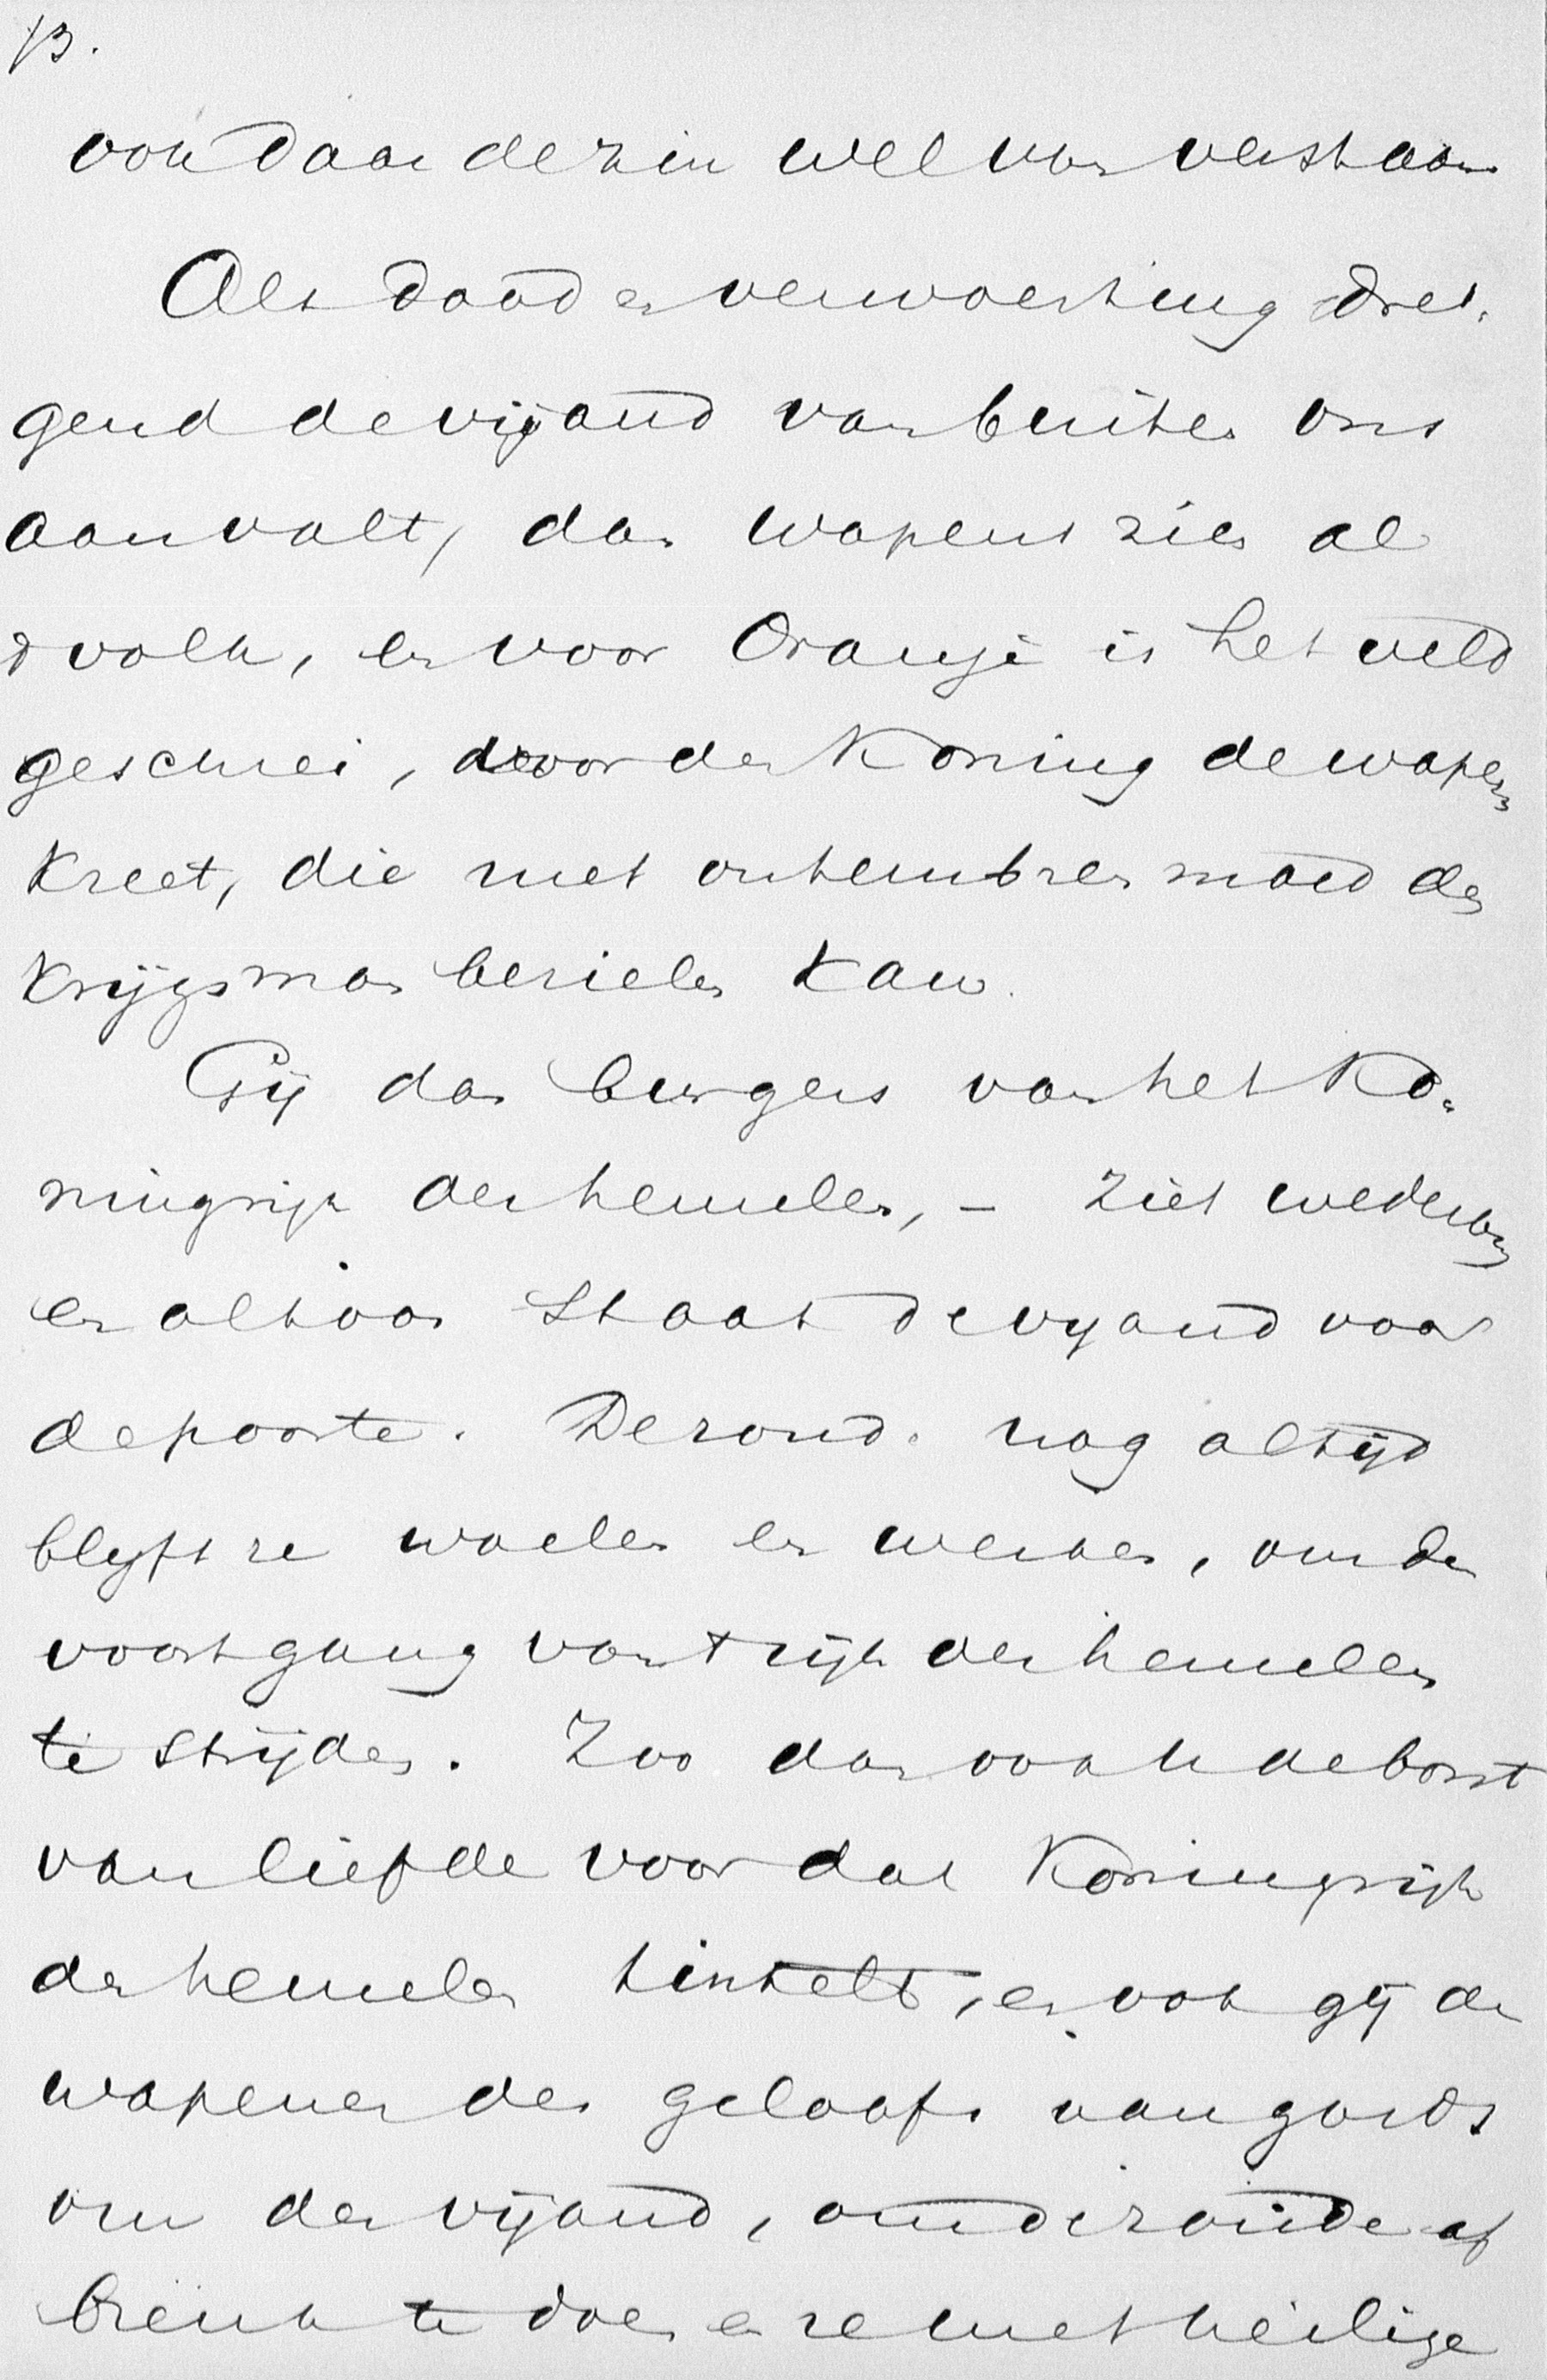 13.
ook daar de zin wel van verstaan
Als dood en verwoesting drei-
gend de vijand van buiten ons
aanvalt, dan wapent zich al
't volk, en voor Oranje is het veld
geschrei, voor den Koning de wapen
kreet, die met ontembren moed den
Krijgsman bezielen kan.
Gij dan burgers van het Ko-
ningrijk der hemelen, – ziet wederom
en altoos staat de vijand voor
de poorte. De zonde nog altijd
blijft ze woelen en werken, om den
voortgang van 't rijk der hemelen
te strijden. Zoo dan ook U de borst
van liefde voor dat Koningrijk
der hemelen tintelt, en ook gij de
wapenen des geloofs aangords
om den vijand, om de zonde af
breuk te doen en ze met heilige